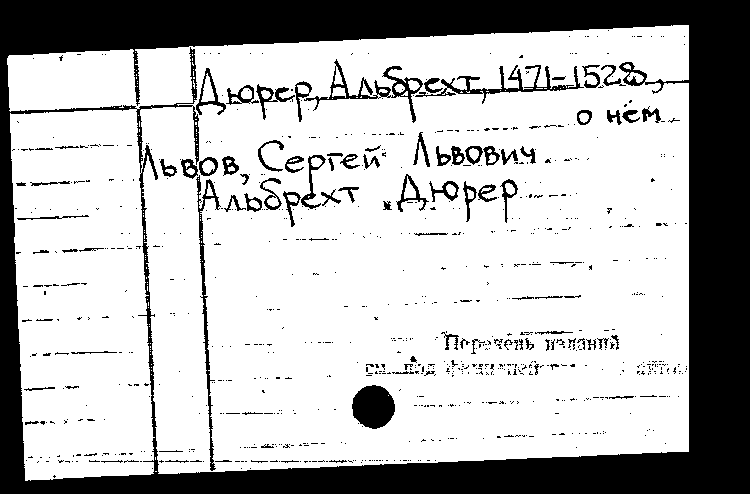 Дюрер, Альбрехт, 1471-1528,
о нём
Львов, Сергей Львович.
Альбрехт Дюрер
Перечень изданий
см. под